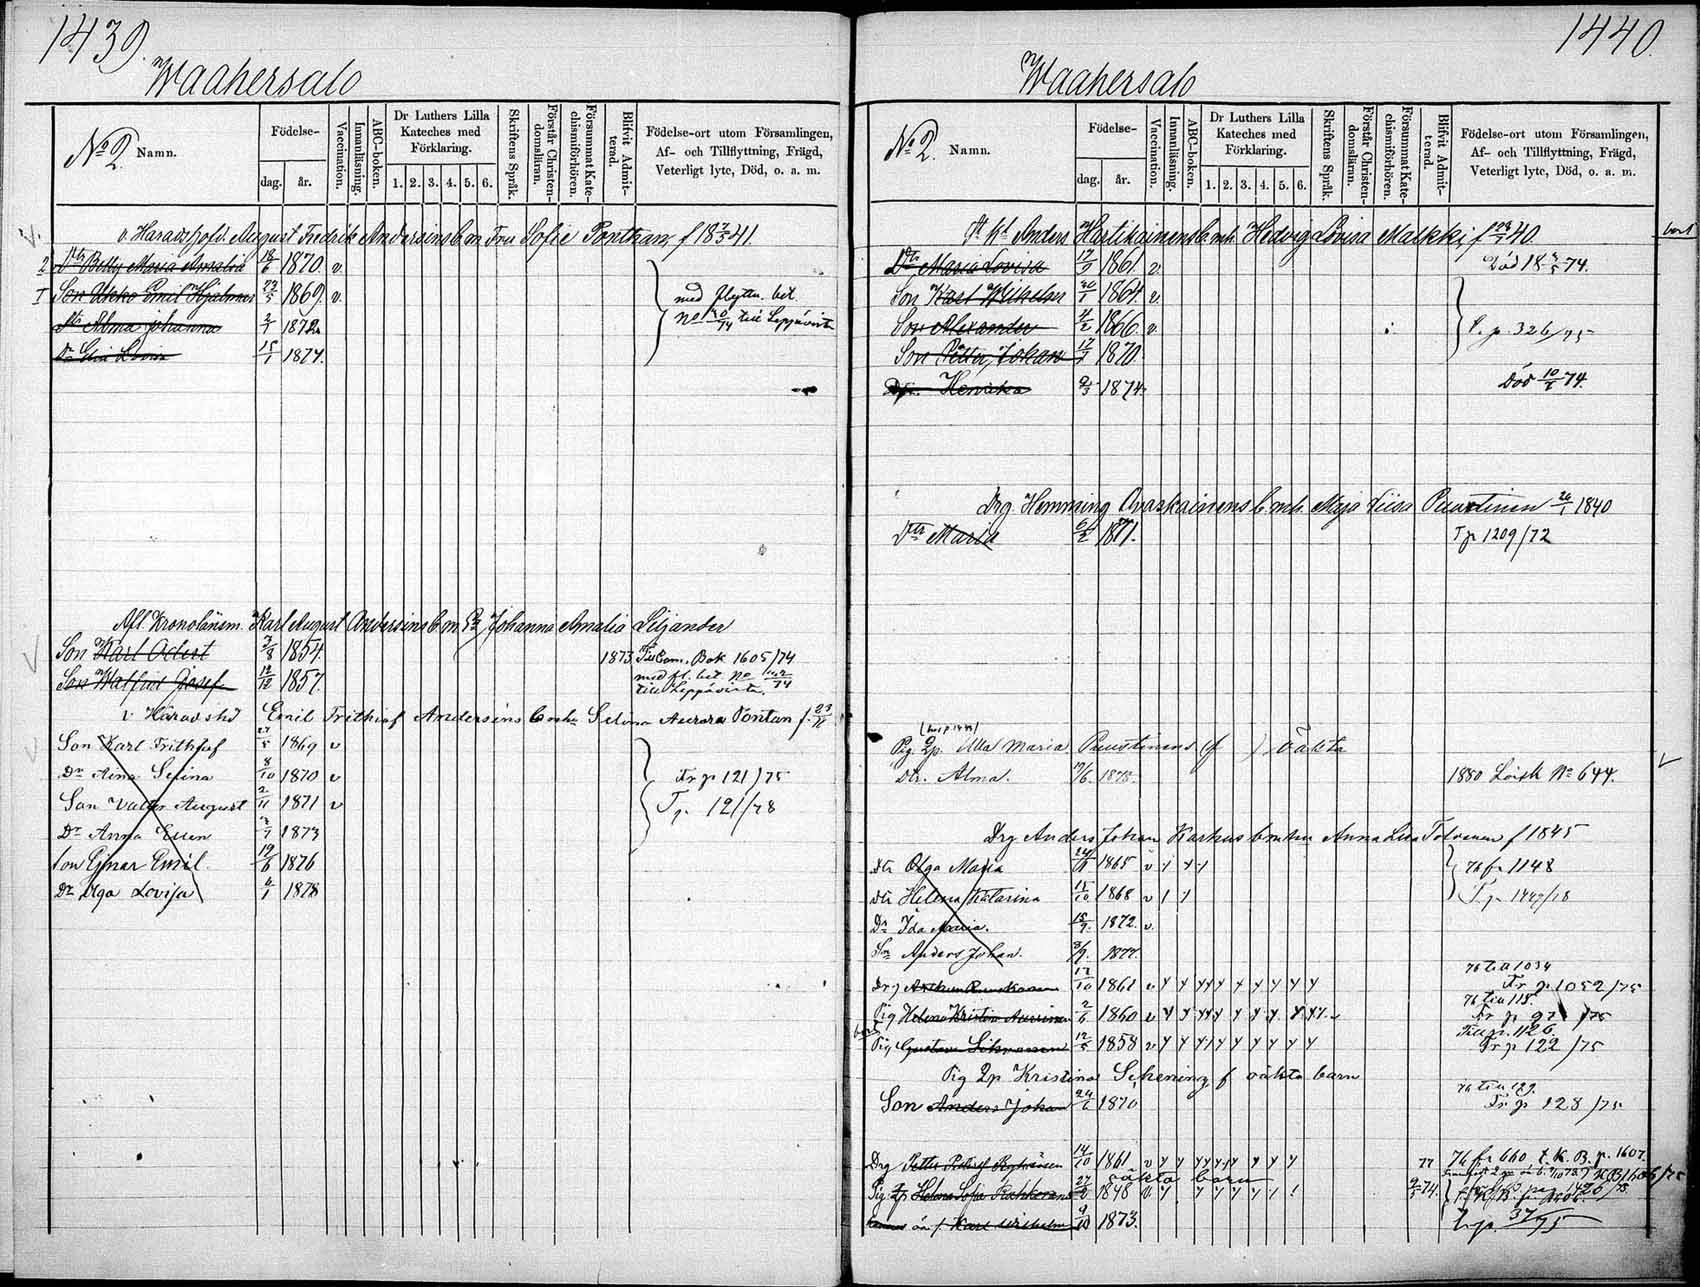 1439.
Waahersalo
No 2. Namn.
Födelse-
dag. år.
Vaccination.
Innanläsning.
ABC-boken.
Dr Luthers Lilla Kateches med Förklaring.
1. 2. 3. 4. 5. 6.
Skriftens Språk.
Förstår Christendomsläran.
Försummat Katechismiförhören.
Blifvit Admitterad.
Födelse-ort utom Församlingen, Af- och Tillflyttning, Frägd, Veterligt lyte, Död, o. a. m.
August Fredrik Andersins b. m. Fru Sofie Ponthan f 18 41.
Dtr Betty Maria Amalia 18/6 1870. v.
Son Ukko Emil Hjalmar 23/5 1869. v. med flyttn. bet.
Dtr Alma Johanna 2/1 1872 No 20/74 till Leppävirta
Dr Lovisa 15/1 1874.
Afl. Kronolänsm. Karl August Andersins b. m. Johanna Amalia Liljander
Son Karl Odert 7/8 1854. 1873 Till Com. Bok 1605/74
Son Walfrid Josef 12/12 1857. med fl. bet. No
till Leppävirta
v. Häradshd Emil Frithiof Andersins b. m. Selina Aurora Pontan f. 23/11
Son Karl Frithjof 27/5 1869 v
Dr Aina Selina 8/10 1870 v Fr p 121/75
Son Valter August 2/11 1871 v T p. 121/78
Dr Anna Ellen 1873
Son Ejnar Emil 19/6 1876
Dr Olga Lovisa 6/1 1878
1440.
Waahersalo
No 2. Namn.
Födelse-
dag. år.
Vaccination.
Innanläsning.
ABC-boken.
Dr Luthers Lilla Kateches med Förklaring.
1. 2. 3. 4. 5. 6.
Skriftens Språk.
Förstår Christendomsläran.
Försummat Katechismiförhören.
Blifvit Admitterad.
Födelse-ort utom Församlingen, Af- och Tillflyttning, Frägd, Veterligt lyte, Död, o. a. m.
Anders Hartikainens b. m. h. Hedvig Lovisa Malkki f 40. bort
Dtr Maria Lovisa 17/9 1861. v. Död 18 74.
Son Karl Wilhelm 30/1 1864. v.
Son Alexander 4/2 1866. v. T. p. 326/75
Son Petter Johan 17/1 1870.
Dtr. Henrika 9/3 1874. Död 10/5 74.
Drg. Hemming Avaskainens b. m. h. Maja Liisa Puustinen 26/1 1840
Dtr Maria 6/2 1871. T p 1209/72
Pig. 2p. Ulla Maria Puustinens (f ) oäkta
Dtr. Alma. 17/6. 1878. 1880 Läsk No 644.
Drg Anders Johan Karhus b m h Anna Lisa Tolvanen f 1845
Dtr Olga Maria 1865 v 76 fr 1148
Dtr Helena Katarina 15/10 1868 v
Dr Ida Maria. 15/9. 1872. v.
Sn Anders Johan. 8/9. 1877.
76 till 1034
Drg 17/10 1861 v Fr p 1052/75
76 till 118.
Pig Helena Kristina 2/6 1860 v Fr p 97/75
bort Till p. 1126.
Pig Gustava 12/5 1858 v Fr p 122/75
Pig 2p Kristina f oäkta barn
76 till 129.
Son Anders Johan 1870 Fr p 128/75
Drg Petter 14/10 1861 v 77 76 fr 660 t. K. B. p. 1607.
oäkta barn
Pig 2p Helena Sofia 27/2 1848 v 74.
Karl Wilhelm 9/10 1873. T. p. 37/75